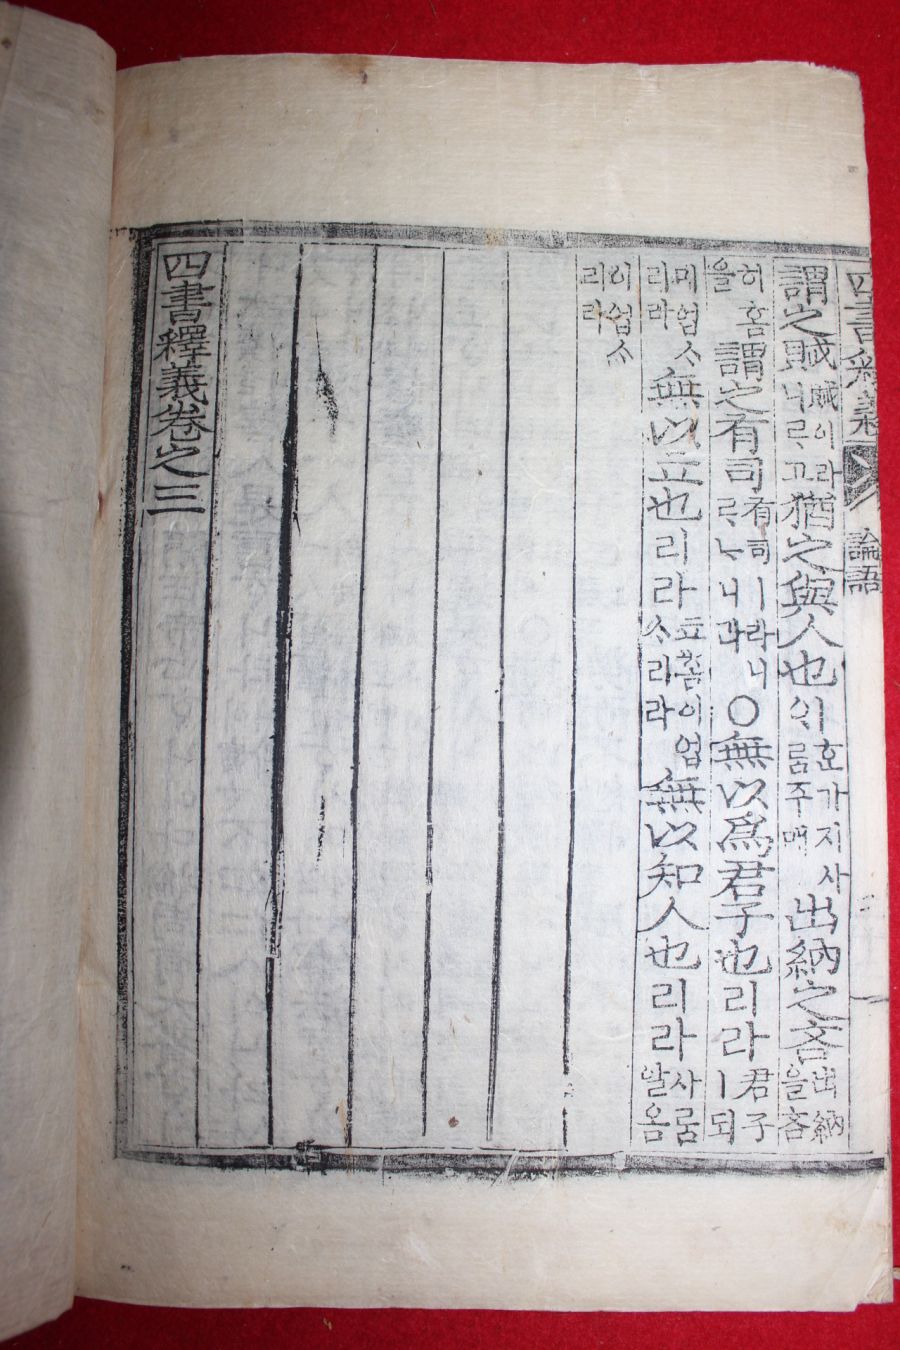 四書釋義 論語
謂之賊賊이라니ᄅᆞ고猶之與人也호가지사주매出納之吝出納을吝
히홈을謂之有司有司ㅣ라니ᄅᆞᄂᆞ니라○無以爲君子也리라君子ㅣ되
미업ᄉᆞ리라無以立也리라홈이업ᄉᆞ리라無以知人也리라사ᄅᆞᆷ알옴
이업ᄉᆞ리라
四書釋義卷之三